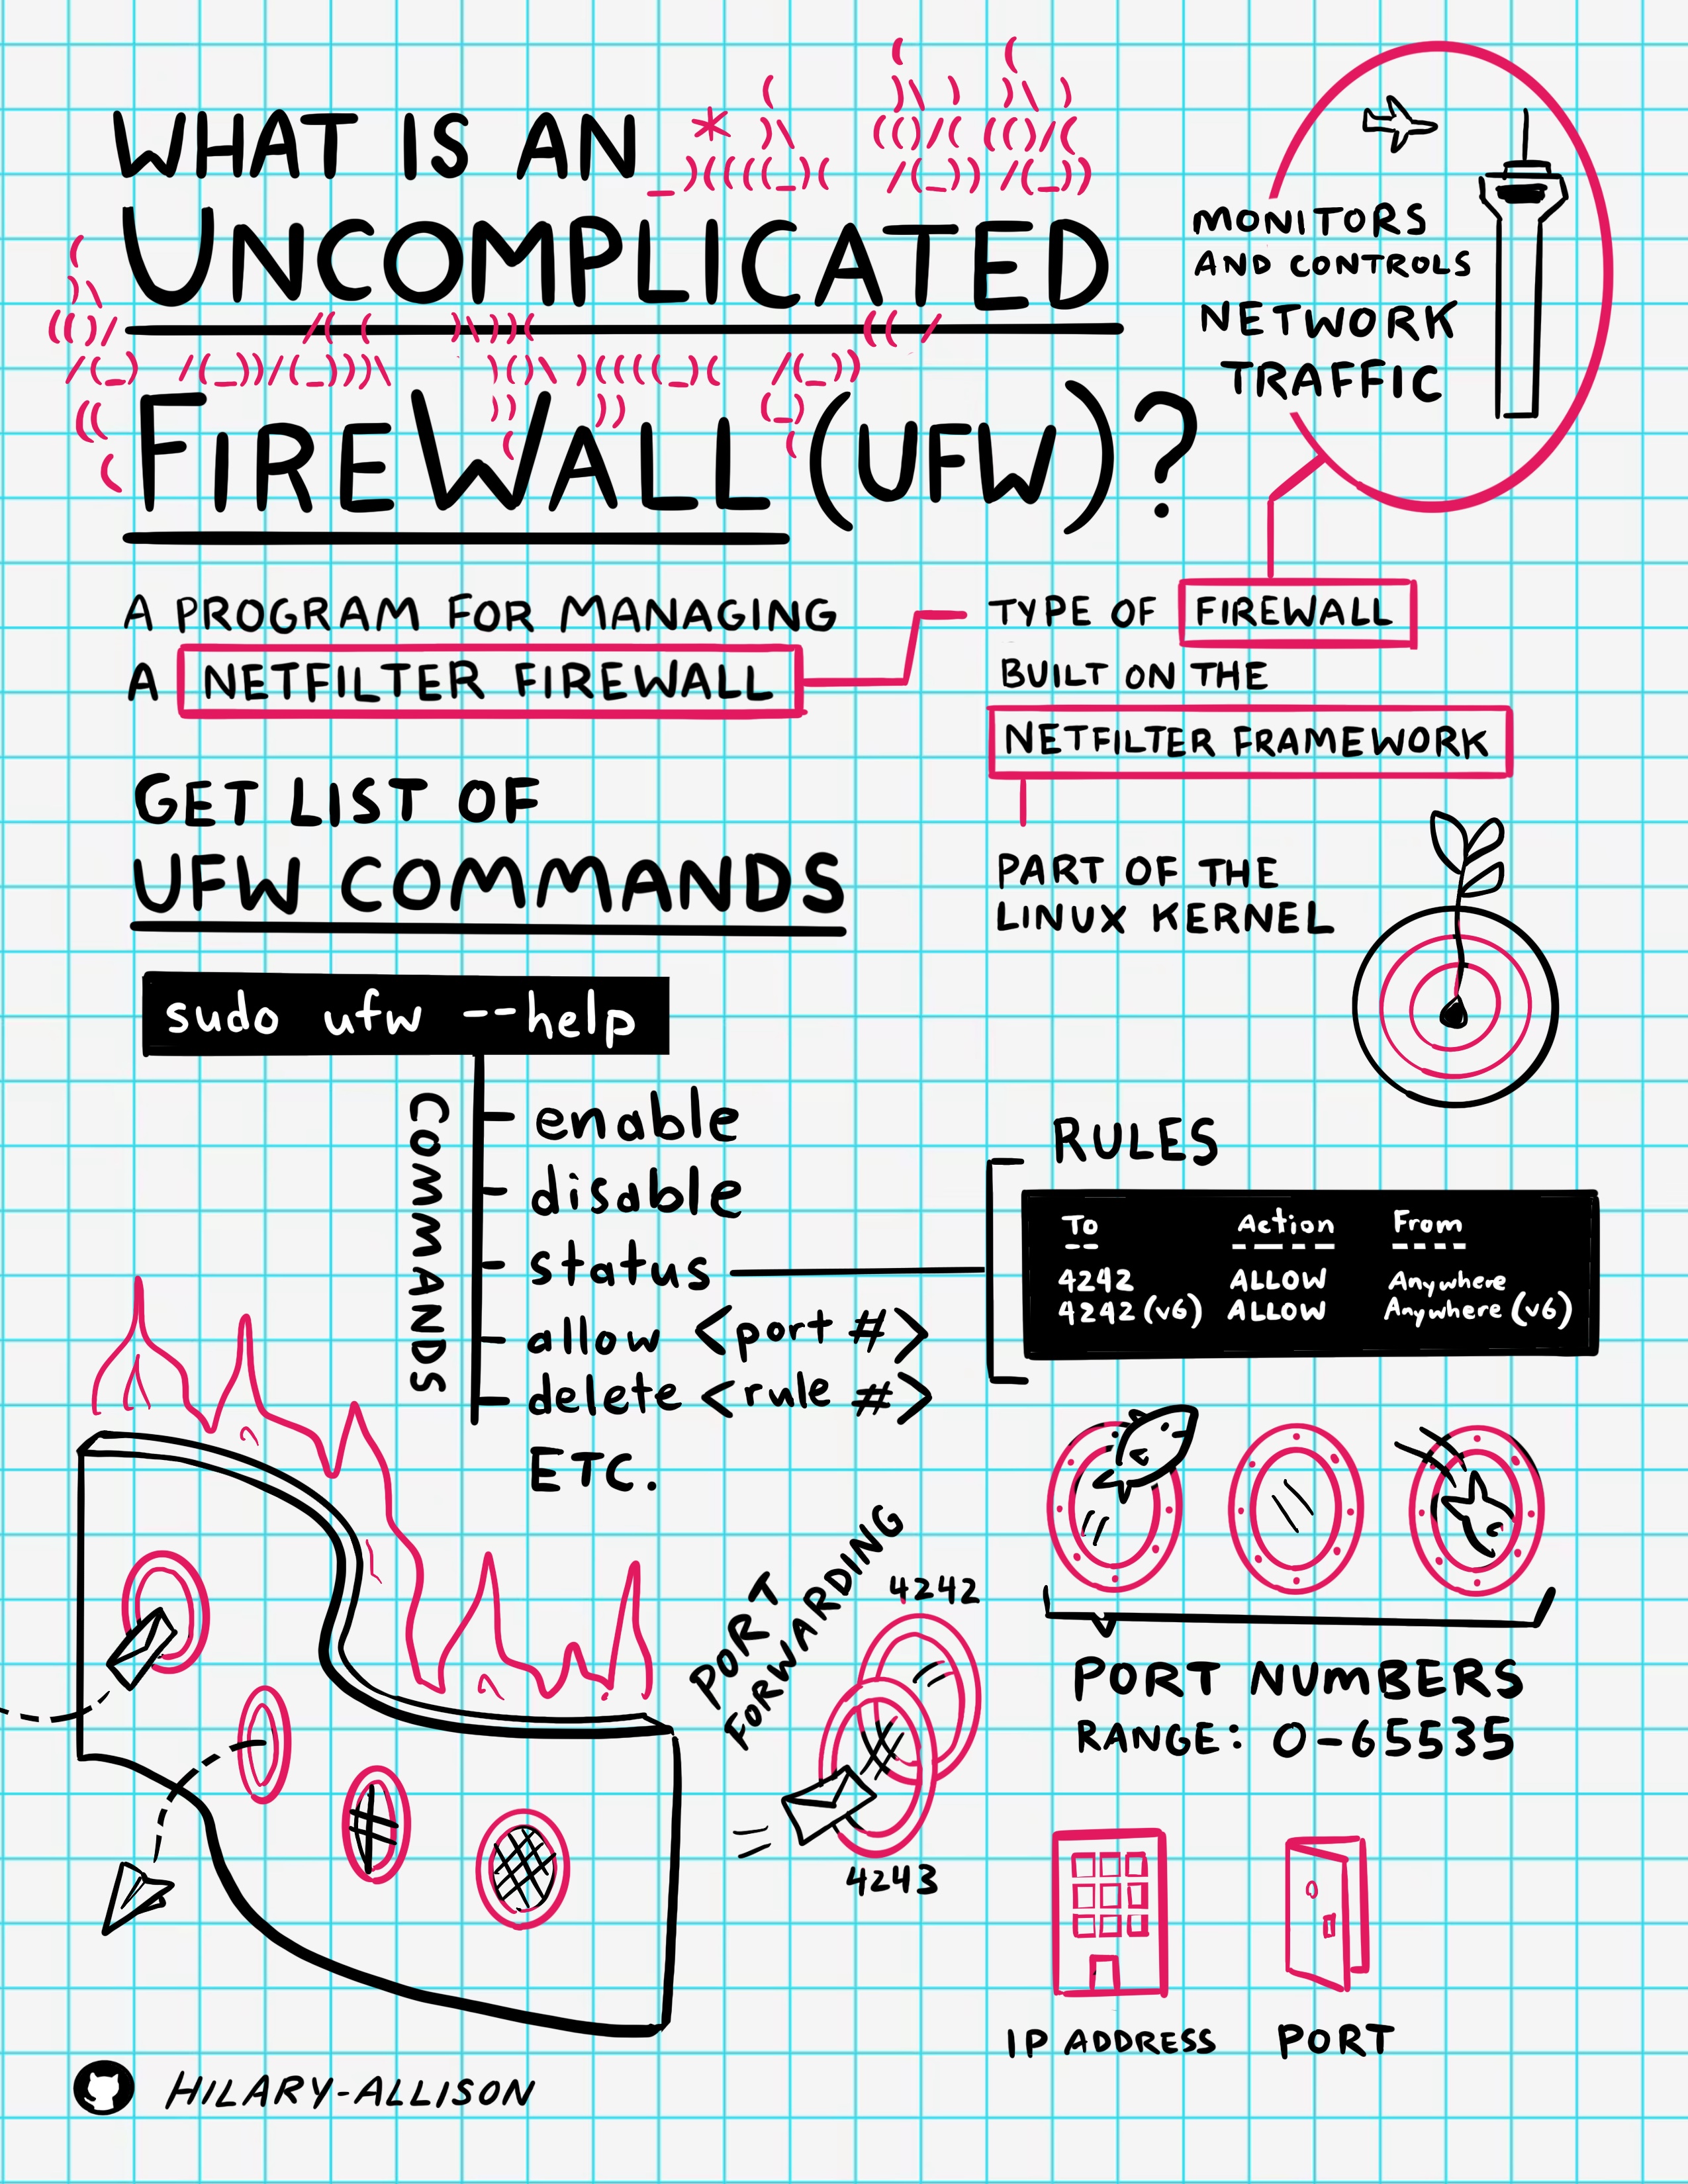 WHAT IS AN
UNCOMPLICATED
FIREWALL (UFW)?
MONITORS
AND CONTROLS
NETWORK
TRAFFIC
A PROGRAM FOR MANAGING
A NETFILTER FIREWALL
TYPE OF FIREWALL
BUILT ON THE
NETFILTER FRAMEWORK
PART OF THE
LINUX KERNEL
GET LIST OF
UFW COMMANDS
sudo ufw --help
COMMANDS
enable
disable
status
allow <port #>
delete <rule #>
ETC.
RULES
To Action From
-- ------ ----
4242 ALLOW Anywhere
4242 (v6) ALLOW Anywhere (v6)
PORT NUMBERS
RANGE: 0-65535
PORT
FORWARDING
4242
4243
IP ADDRESS
PORT
HILARY-ALLISON